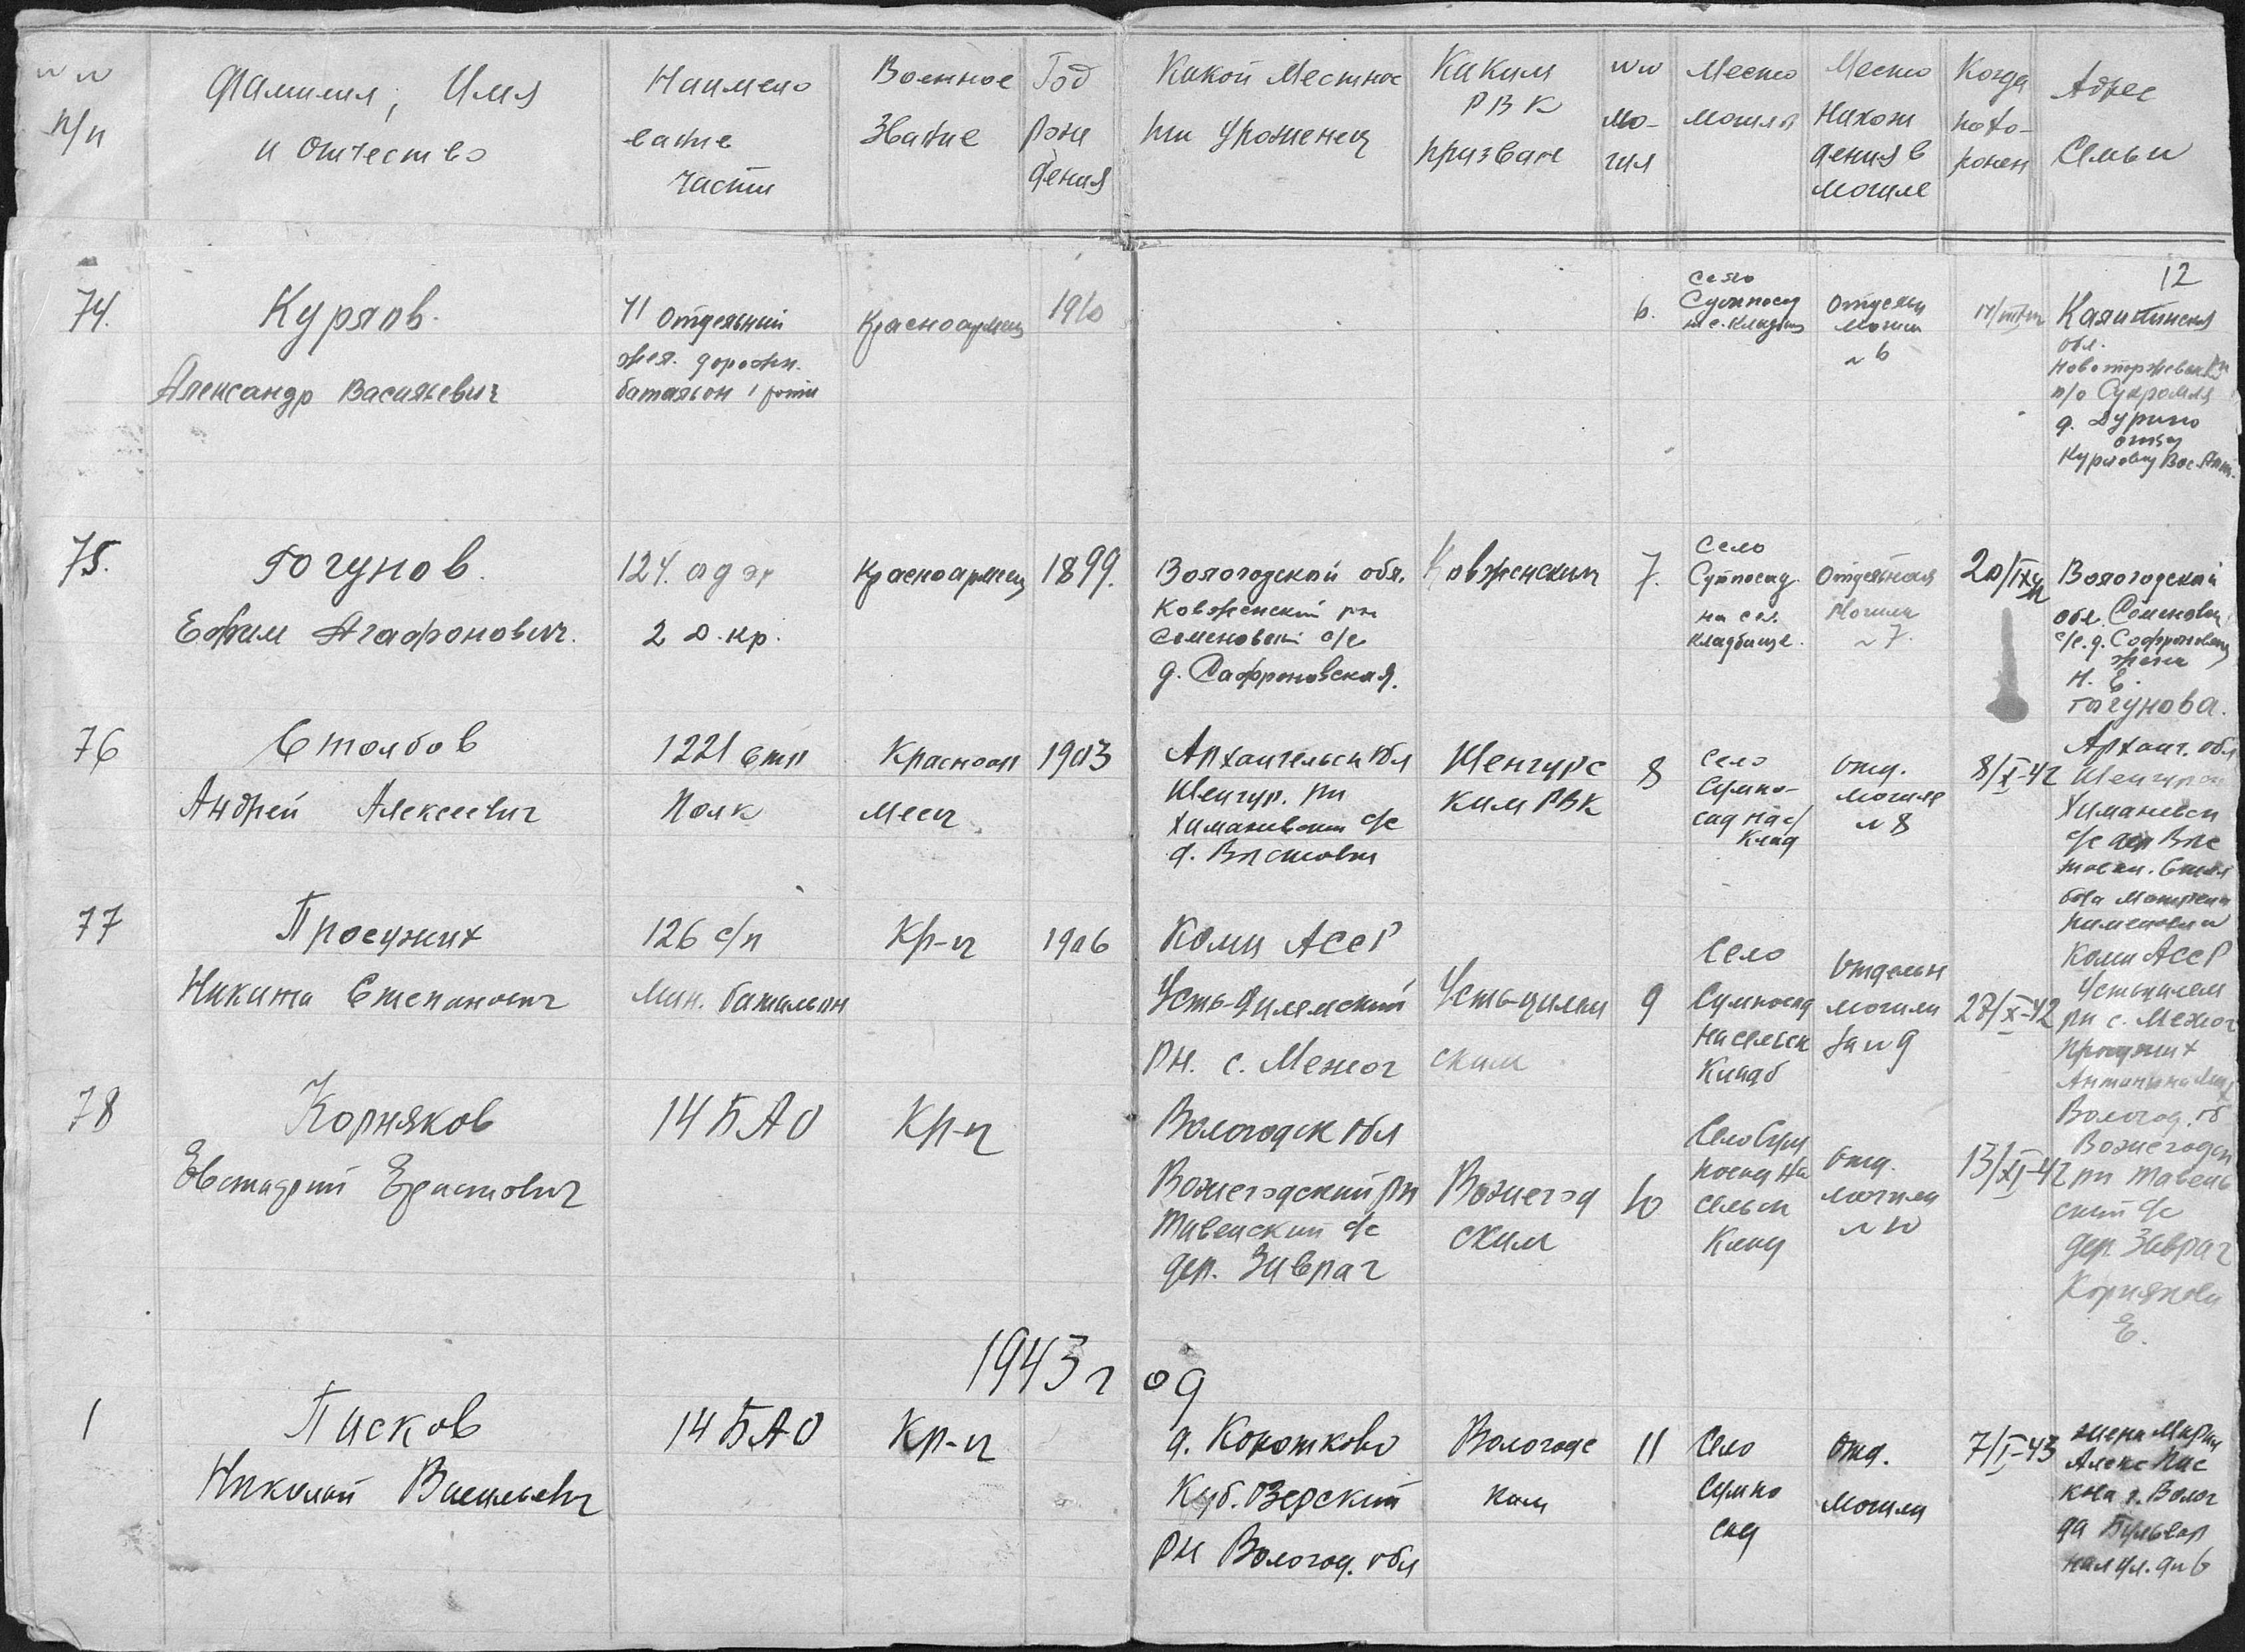 №№ п/п
Фамилия, Имя
и отчество
Наимено
вание
части
Военное
Звание
Год
рож
дения
Какой Местнос
ти уроженец
Каким
РВК
призван
№№
мо-
гил
Место
могилы
Место
Нахож
дения в
могиле
Когда
похо-
ронен
Адрес
Семьи
12
74.
Куряов.
Александр Васильевич
71 Отдельный
жел. дорожн.
батальон 1 роты
Красноармеец
1910
6.
село
Сумпосад
на с. кладбищ
Отдельн
могил
№ 6
Калининская
обл.
Новоторжевский рн
п/о Сукромля
д. Дурино
отцу
Курялову Вас.
75.
Гогунов.
Ефим Агафонович.
124. од эр
2 д. кр.
Красноармеец
1899.
Вологодской обл.
Ковженский рн
Семеновский с/с
д. Сафроновская.
Ковженским
7.
Село
Сумпосад
на сел.
кладбище.
Отдельная
Могила
№ 7.
20/IX 42
Вологодской
обл. Семеновский
с/с. д. Софроновская
жена
Н. Е.
Гогунова.
76
Столбов
Андрей Алексеевич
1221 стл
Полк
Красноар
меец
1903
Архангельск обл
Шенкур. рн
Химаневском с/с
д. Властовка
Шенгурс
ким РВК
8
село
Сумпо-
сад на с/
Клад
Отд.
могила
№ 8
8/X-42
Арханг. обл
Шенгурск
Химаневск
с/с дер
77
Просужих
Никита Степанович
126 с/п
Мин. батальон
Кр-ц
1906
Коми АССР
Усть-Цилемский
рн. с. Межог
Усть-цилем
ским
9
Село
Сумпосад
на сельск
Кладб
Отдельн
могила
за № 9
27/X-42
Коми АССР
Устьцилем
рн с. Межог
Просужих
Антонина
78
Корняков
Евстафий Ерастович
14 БАО
Кр-ц
Вологодск обл
Вожегодский рн
Тавенский с/с
дер. Заврач
Вожегод
ским
10
Село Сум
посад на
сельск
Клад
Отд.
могила
№ 10
13/XI-42
Вологод. об
Вожегодск
рн Тавень
ский с/с
дер. Заврач
Корнякова
Е.
1943 год
1
Писков
Николай Васильевич
14 БАО
Кр-ц
д. Коротково
Куб. Озерский
рн Вологод. обл
Вологодс
ким
11
Село
Сумпо
сад
Отд.
могила
7/I-43
жена Мария
Алекс Пис
кова г. Волог
да Бульвар
ная ул. д №6